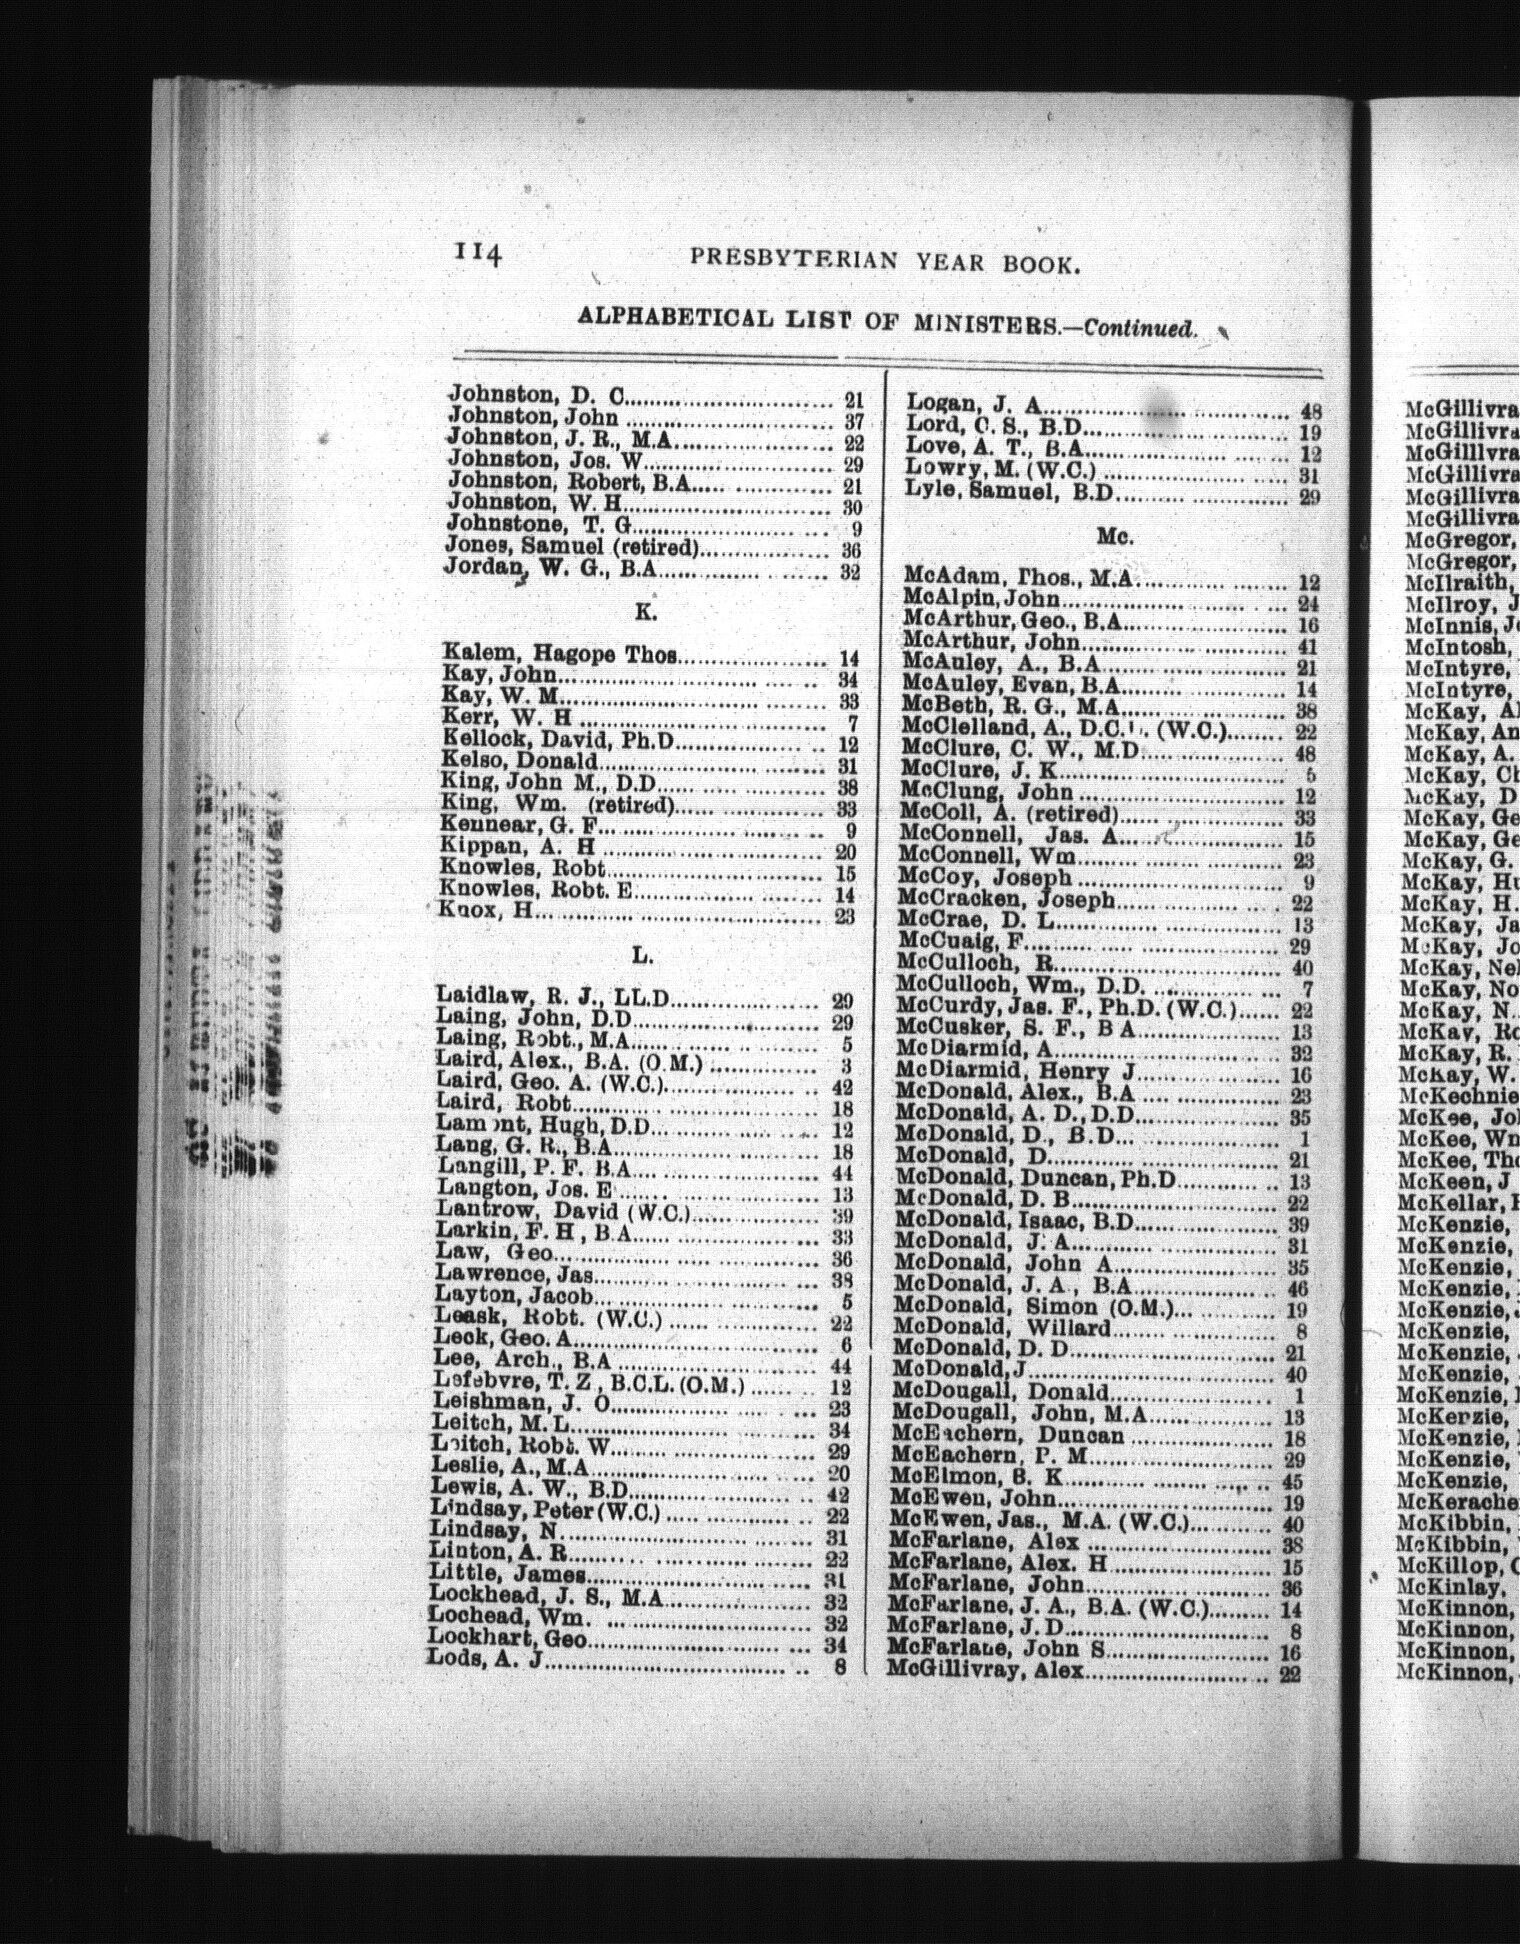 114 PRESBYTERIAN YEAR BOOK.
ALPHABETICAL LIST OF MINISTERS.—Continued.
Johnston, D. C. 21
Johnston, John 37
Johnston, J. R., M.A. 22
Johnston, Jos. W. 29
Johnston, Robert, B.A. 21
Johnston, W. H. 30
Johnstone, T. G. 9
Jones, Samuel (retired) 36
Jordan, W. G., B.A. 32
K.
Kalem, Hagope Thos. 14
Kay, John 34
Kay, W. M. 33
Kerr, W. H 7
Kellock, David, Ph.D. 12
Kelso, Donald 31
King, John M., D.D. 38
King, Wm. (retired) 33
Kennear, G. F. 9
Kippan, A. H 20
Knowles, Robt. 15
Knowles, Robt. E. 14
Knox, H. 23
L.
Laidlaw, R. J., LL.D. 29
Laing, John, D.D. 29
Laing, Robt., M.A. 5
Laird, Alex., B.A. (O M.) 3
Laird, Geo. A. (W.C.) 42
Laird, Robt. 18
Lamont, Hugh, D.D. 12
Lang, G. R., B.A. 18
Langill, P. F. B.A. 44
Langton, Jos. E 13
Lantrow, David (W.C.) 39
Larkin, F. H, B.A. 33
Law, Geo. 36
Lawrence, Jas. 38
Layton, Jacob 5
Leask, Robt. (W.C.) 22
Leck, Geo. A. 6
Lee, Arch., B.A 44
Lefebvre, T. Z, B.C.L. (O.M.) 12
Leishman, J. O. 23
Leitch, M. L. 34
Leitch, Robt. W. 29
Leslie, A., M.A. 20
Lewis, A. W., B.D. 42
Lindsay, Peter (W.C.) 22
Lindsay, N. 31
Linton, A. R. 22
Little, James 31
Lockhead, J. S., M.A. 32
Lochead, Wm. 32
Lockhart, Geo. 34
Lods, A. J. 8
Logan, J. A. 48
Lord, C. S., B.D. 19
Love, A. T., B.A. 12
Lowry, M. (W.C.) 31
Lyle, Samuel, B.D. 29
Mc.
McAdam, Thos., M.A. 12
McAlpin, John 24
McArthur, Geo., B.A. 16
McArthur, John 41
McAuley, A., B.A. 21
McAuley, Evan, B.A. 14
McBeth, R. G., M.A. 38
McClelland, A., D.C. (W.C.) 22
McClure, C. W., M.D. 48
McClure, J. K. 5
McClung, John 12
McColl, A. (retired) 33
McConnell, Jas. A. 15
McConnell, Wm. 23
McCoy, Joseph 9
McCracken, Joseph 22
McCrae, D. L. 13
McCuaig, F. 29
McCulloch, R. 40
McCulloch, Wm., D.D. 7
McCurdy, Jas. F., Ph.D. (W.C.) 22
McCusker, S. F., B A. 13
McDiarmid, A. 32
McDiarmid, Henry J. 16
McDonald, Alex., B.A 23
McDonald, A. D., D.D. 35
McDonald, D., B.D. 1
McDonald, D. 21
McDonald, Duncan, Ph.D. 13
McDonald, D. B. 22
McDonald, Isaac, B.D. 39
McDonald, J. A. 31
McDonald, John A. 35
McDonald, J. A, B.A. 46
McDonald, Simon (O.M.) 19
McDonald, Willard 8
McDonald, D. D. 21
McDonald, J. 40
McDougall, Donald 1
McDougall, John, M.A. 13
McEachern, Duncan 18
McEachern, P. M. 29
McElmon, S. K 45
McEwen, John 19
McEwen, Jas., M.A. (W.C.) 40
McFarlane, Alex 38
McFarlane, Alex. H 15
McFarlane, John 36
McFarlane, J. A., B.A. (W.C.) 14
McFarlane, J. D. 8
McFarlane, John S. 16
McGillivray, Alex. 22
McGillivra
McGillivra
McGillivra
McGillivra
McGillivra
McGillivra
McGregor,
McGregor,
McIlraith,
McIlroy, J
McInnis, Jo
McIntosh,
McIntyre,
McIntyre,
McKay, Al
McKay, An
McKay, A.
McKay, Ch
McKay, D
McKay, Ge
McKay, Ge
McKay, G.
McKay, Hu
McKay, H.
McKay, Ja
McKay, Jo
McKay, Nel
McKay, No
McKay, N.
McKay, Ro
McKay, R.
McKay, W.
McKechnie
McKee, Joh
McKee, Wm
McKee, Tho
McKeen, J
McKellar,
McKenzie,
McKenzie,
McKenzie,
McKenzie,
McKenzie,
McKenzie,
McKenzie,
McKenzie,
McKenzie,
McKenzie,
McKenzie,
McKenzie,
McKenzie,
McKerache
McKibbin,
McKibbin,
McKillop,
McKinlay,
McKinnon,
McKinnon,
McKinnon,
McKinnon,